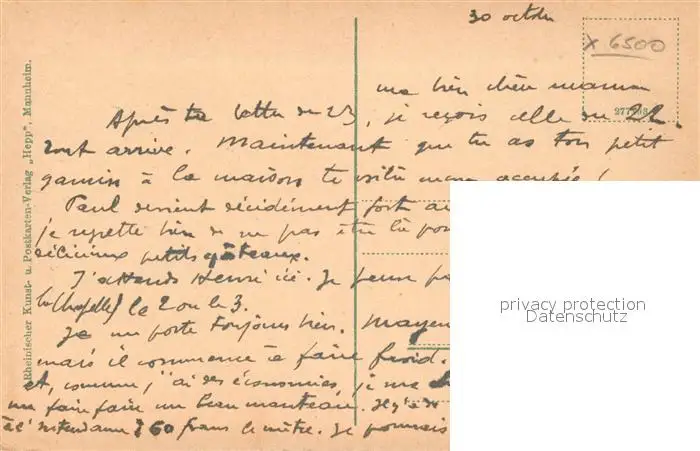 30 octobre
X 6500
ma bien chère maman
Après ta lettre du 23, je reçois celle du 22.
tout arrive. Maintenant que tu as ton petit
gamin à la maison te voilà occupée !
Paul devient décidément fort
je regrette bien de ne pas être là
délicieux petits gâteaux.
J'attends Henri ici. Je pense
la Chapelle) le 2 ou le 3.
Je me porte toujours bien.
mais il commence à faire froid.
et, comme j'ai des économies, je me
faire un beau manteau.
à 60 francs le mètre. Je pourrais
Rheinischer Kunst- u. Postkarten-Verlag „Hepp", Mannheim.
privacy protection
Datenschutz